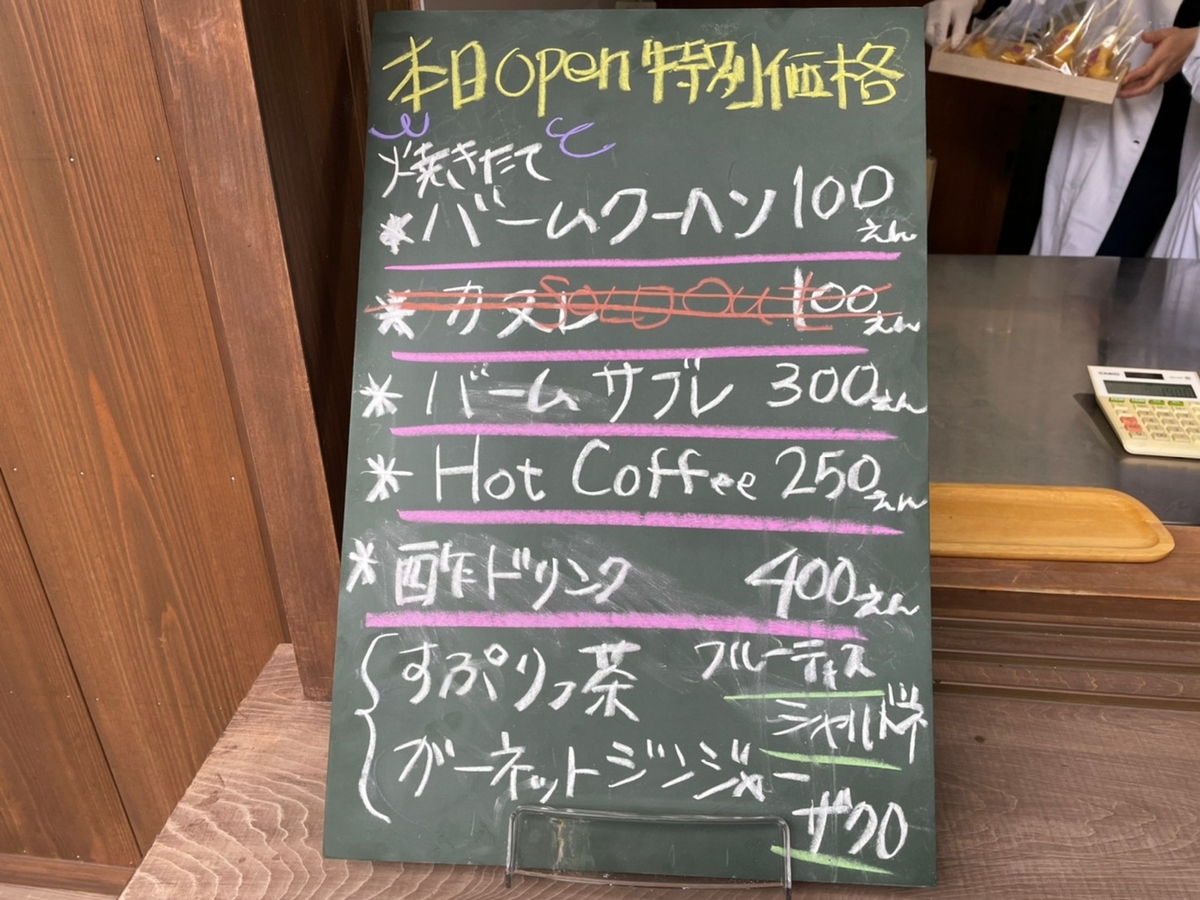 本日Open特別価格
焼きたて
* バームクーヘン 100えん
* カヌレ 100えん
SOLD Out
* バームサブレ 300えん
* Hot Coffee 250えん
* 酢ドリンク 400えん
すぷりっ茶 フルーティス
シャルドネ
ガーネットジンジャー
ザクロ
CASIO